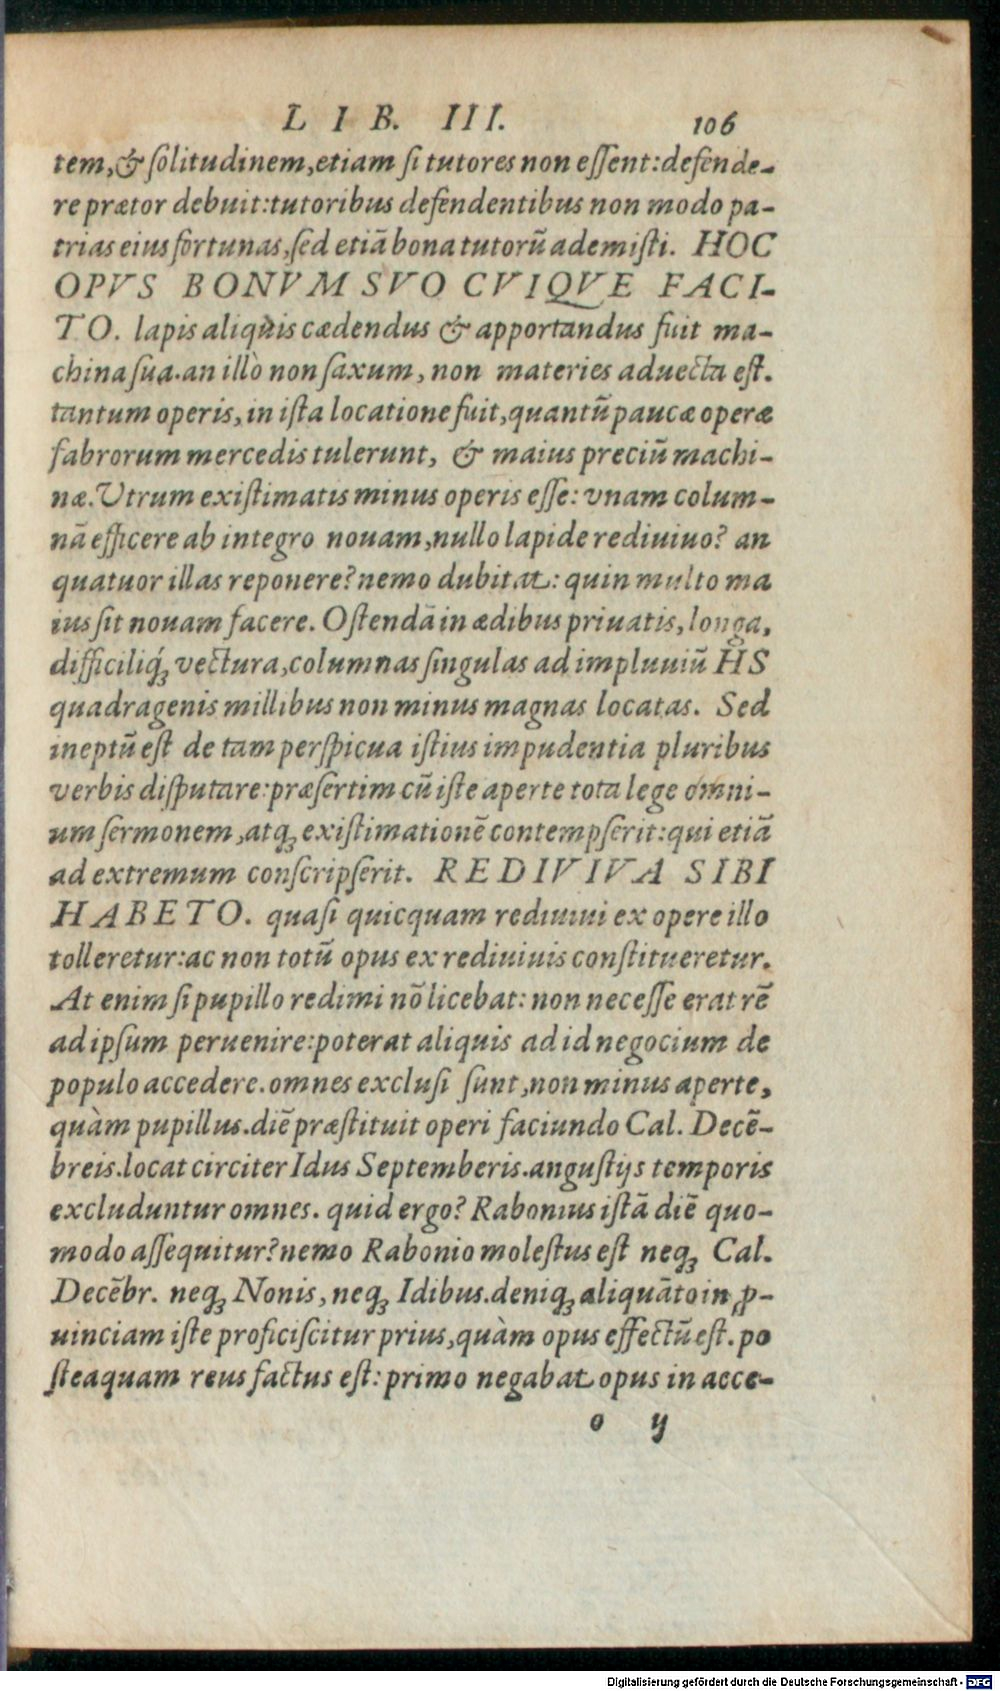 LIB. III. 106
tem,& ſolitudinem,etiam ſi tutores non eſſent:defende-
re prætor debuit:tutoribus defendentibus non modo pa-
trias eius fortunas,ſed etiā bona tutorū ademiſti. HOC
OPVS BONVM SVO CVIQVE FACI-
TO. lapis aliquis cædendus & apportandus fuit ma-
china ſua.an illò non ſaxum, non materies aduecta eſt.
tantum operis, in iſta locatione fuit,quantū paucæ operæ
fabrorum mercedis tulerunt, & maius preciū machi-
næ.Vtrum exiſtimatis minus operis eſſe: vnam colum-
nā efficere ab integro nouam,nullo lapide rediuiuo? an
quatuor illas reponere?nemo dubitat: quin multo ma
ius ſit nouam facere. Oſtendā in ædibus priuatis, longa,
difficiliq́ꝫ vectura,columnas ſingulas ad impluuiū HS
quadragenis millibus non minus magnas locatas. Sed
ineptū eſt de tam perſpicua iſtius impudentia pluribus
verbis diſputare:præſertim cū iſte aperte tota lege omni-
um ſermonem,atqꝫ exiſtimationē contempſerit:qui etiā
ad extremum conſcripſerit. REDIVIVA SIBI
HABETO. quaſi quicquam rediuiui ex opere illo
tolleretur:ac non totū opus ex rediuiuis conſtitueretur.
At enim ſi pupillo redimi nō licebat: non neceſſe erat rē
ad ipſum peruenire:poterat aliquis ad id negocium de
populo accedere.omnes excluſi ſunt,non minus aperte,
quàm pupillus.diē præſtituit operi faciundo Cal. Decē-
breis.locat circiter Idus Septemberis.anguſtijs temporis
excluduntur omnes. quid ergo? Rabonius iſtā diē quo-
modo aſſequitur?nemo Rabonio moleſtus eſt neqꝫ Cal.
Decēbr. neqꝫ Nonis, neqꝫ Idibus.deniqꝫ aliquāto in ꝓ-
uinciam iſte proficiſcitur prius,quàm opus effectū eſt. po
ſteaquam reus factus eſt: primo negabat opus in acce-
o ij
Digitalisierung gefördert durch die Deutsche Forschungsgemeinschaft - DFG